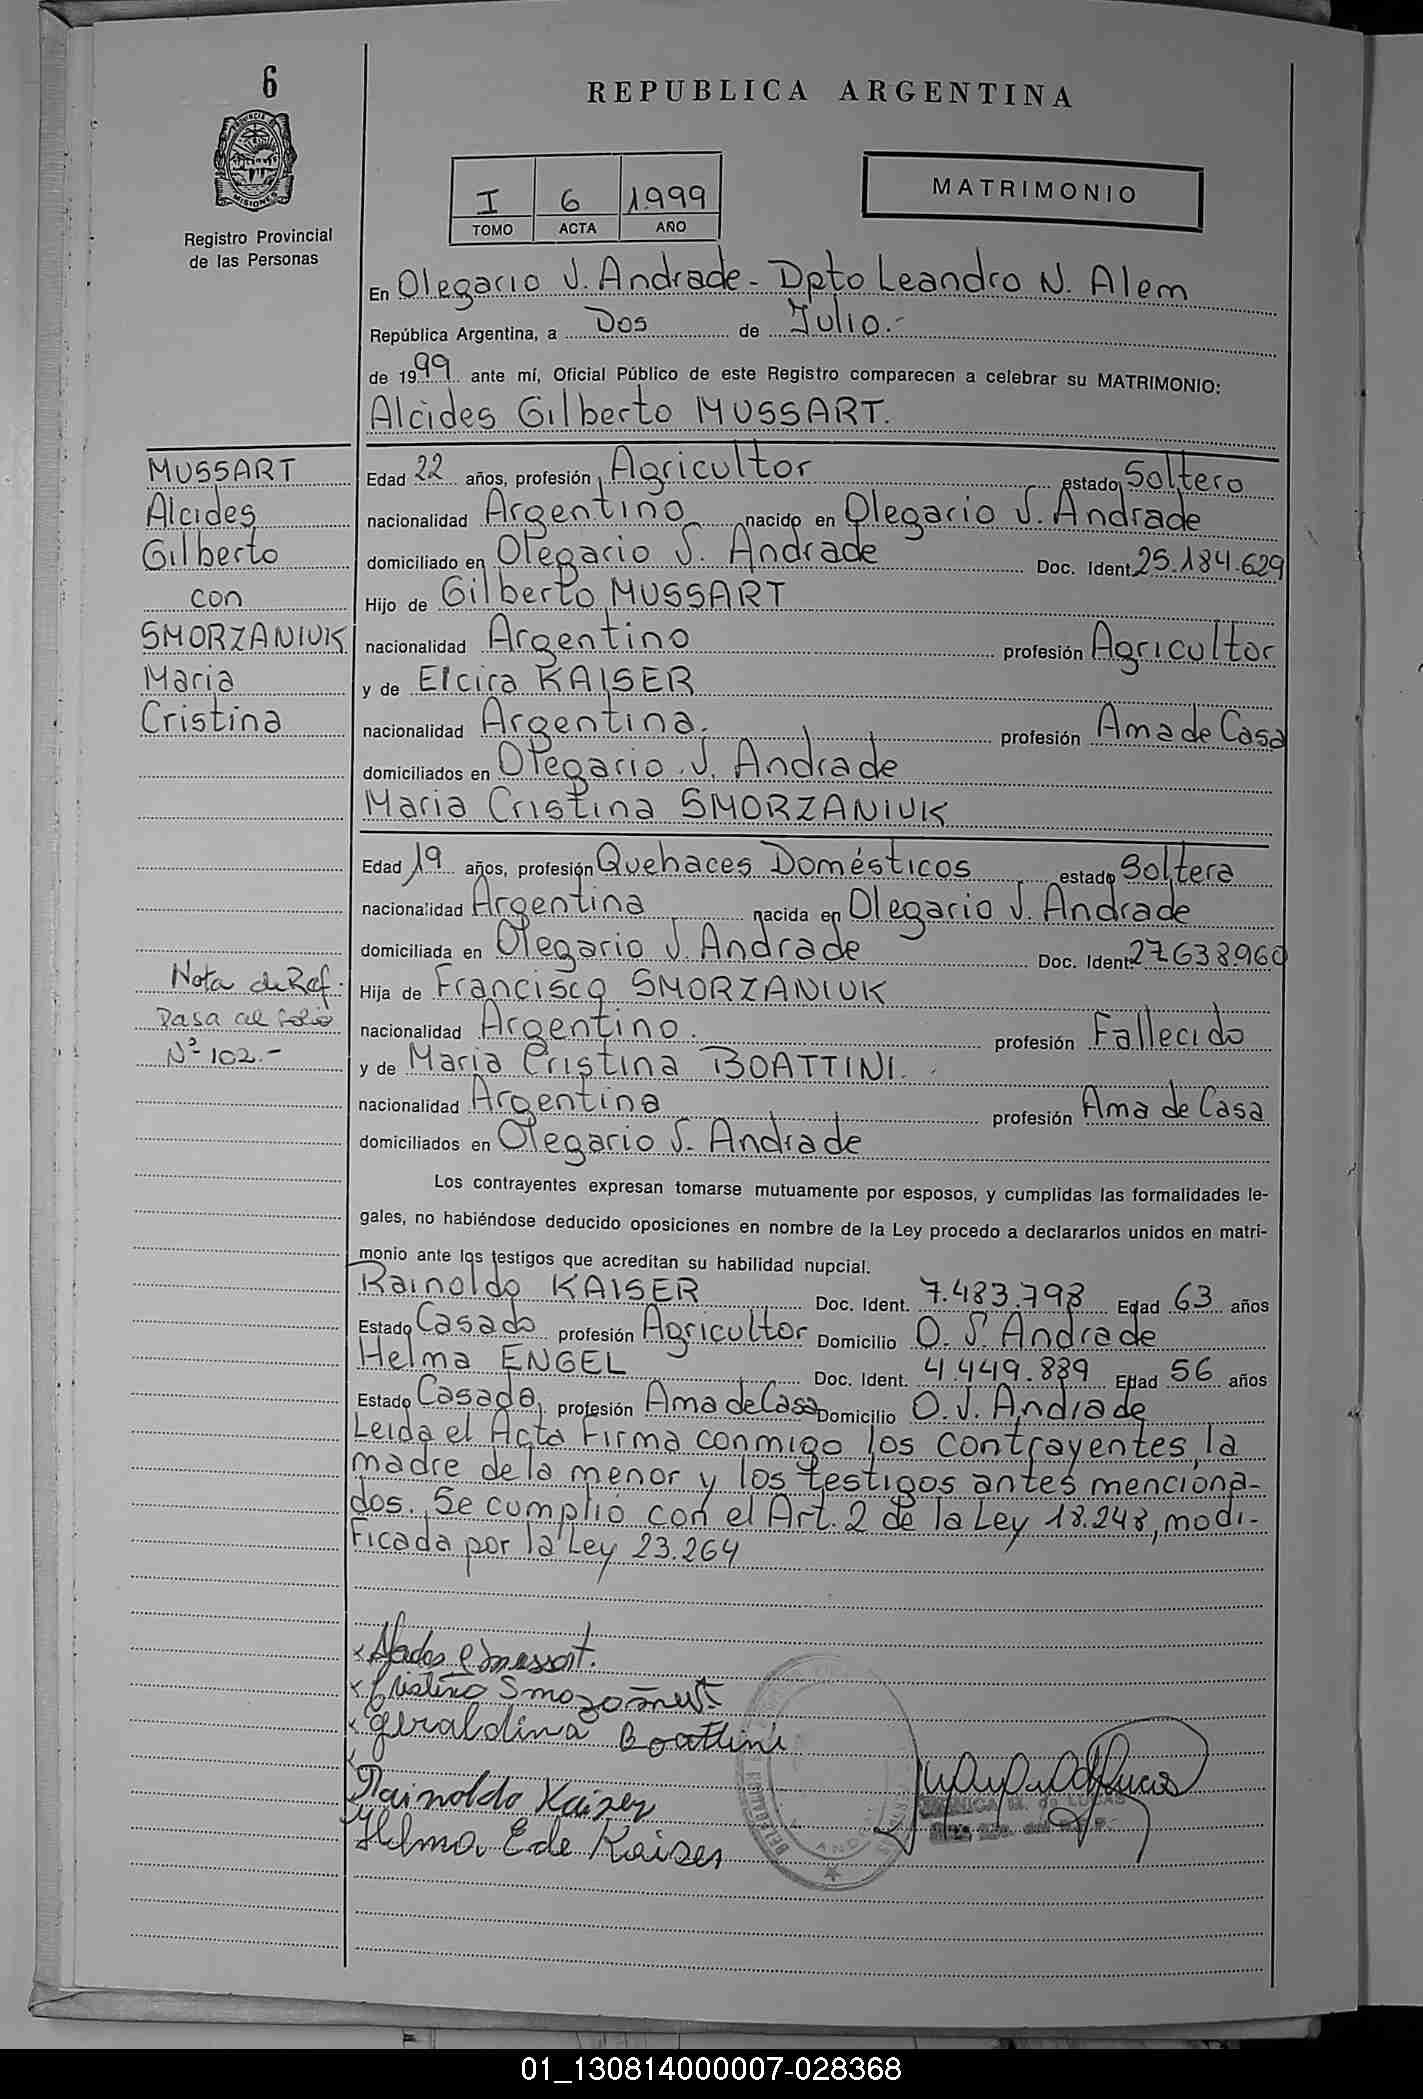 6
REPUBLICA ARGENTINA
PROVINCIA DE
MISIONES
Registro Provincial
de las Personas
I 6 1.999
TOMO ACTA AÑO
MATRIMONIO
En Olegario V. Andrade - Dpto Leandro N. Alem
República Argentina, a Dos de Julio.-
de 1999 ante mí, Oficial Público de este Registro comparecen a celebrar su MATRIMONIO:
Alcides Gilberto MUSSART.
MUSSART
Alcides
Gilberto
con
SMORZANIUK
Maria
Cristina
Edad 22 años, profesión Agricultor estado Soltero
nacionalidad Argentino nacido en Olegario V. Andrade
domiciliado en Olegario V. Andrade Doc. Ident. 25.184.629
Hijo de Gilberto MUSSART
nacionalidad Argentino profesión Agricultor
y de Elcira KAISER
nacionalidad Argentina. profesión Ama de Casa
domiciliados en Olegario V. Andrade
Maria Cristina SMORZANIUK
Edad 19 años, profesión Quehaces Domésticos estado Soltera
nacionalidad Argentina nacida en Olegario V. Andrade
domiciliada en Olegario V. Andrade Doc. Ident. 27.638.960
Hija de Francisco SMORZANIUK
nacionalidad Argentino. profesión Fallecido
y de Maria Cristina BOATTINI.
nacionalidad Argentina profesión Ama de Casa
domiciliados en Olegario V. Andrade
Nota de Ref:
Pasa al folio
Nº 102.-
Los contrayentes expresan tomarse mutuamente por esposos, y cumplidas las formalidades le-
gales, no habiéndose deducido oposiciones en nombre de la Ley procedo a declararlos unidos en matri-
monio ante los testigos que acreditan su habilidad nupcial.
Rainoldo KAISER Doc. Ident. 7.483.798 Edad 63 años
Estado Casado profesión Agricultor Domicilio O. V. Andrade
Helma ENGEL Doc. Ident. 4.449.889 Edad 56 años
Estado Casada, profesión Ama de Casa Domicilio O. V. Andrade
Leida el Acta Firma conmigo los contrayentes, la
madre de la menor y los testigos antes menciona-
dos. Se cumplió con el Art. 2 de la Ley 18.248, modi-
ficada por la Ley 23.264
Cristina
Geraldina Boattini
Rainoldo Kaiser
Helma E de Kaiser
de LUCAS
01_130814000007-028368